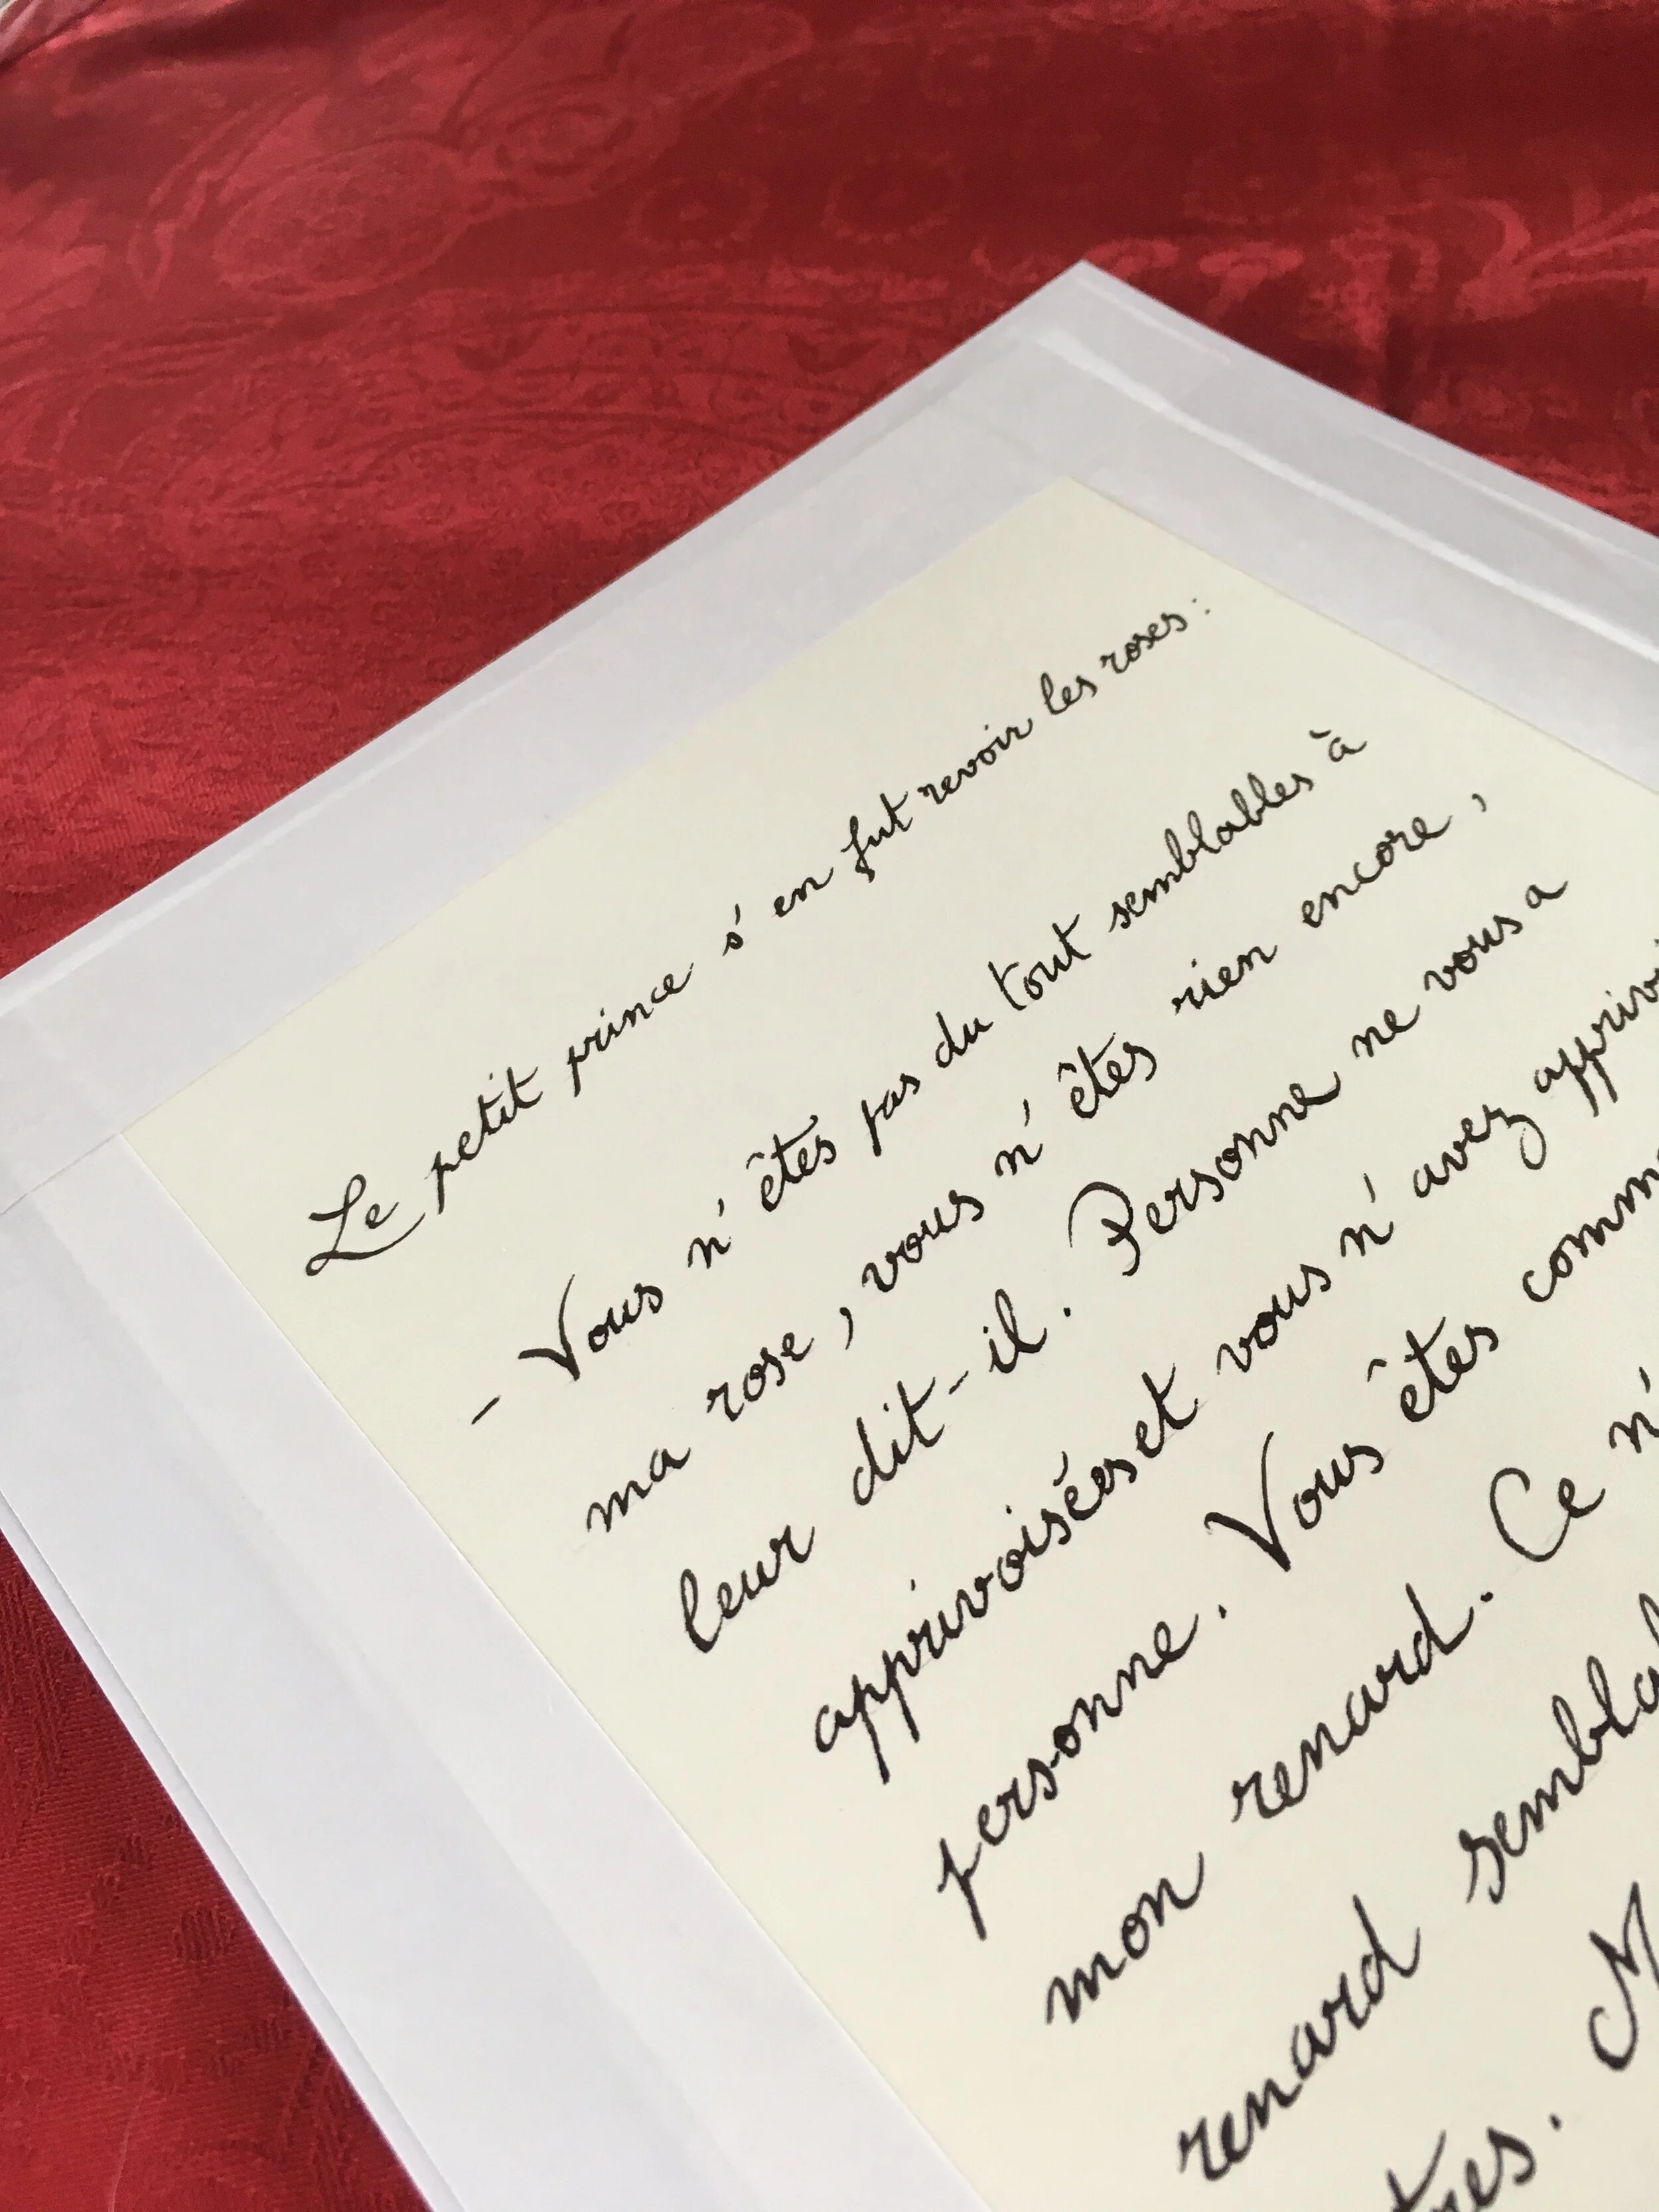 Le petit prince s'en fut revoir les roses :
- Vous n'êtes pas du tout semblables à
ma rose, vous n'êtes rien encore,
leur dit-il. Personne ne vous a
apprivoisées et vous n'avez apprivoi
personne. Vous êtes comm
mon renard. Ce n'
renard sembla
tres. M